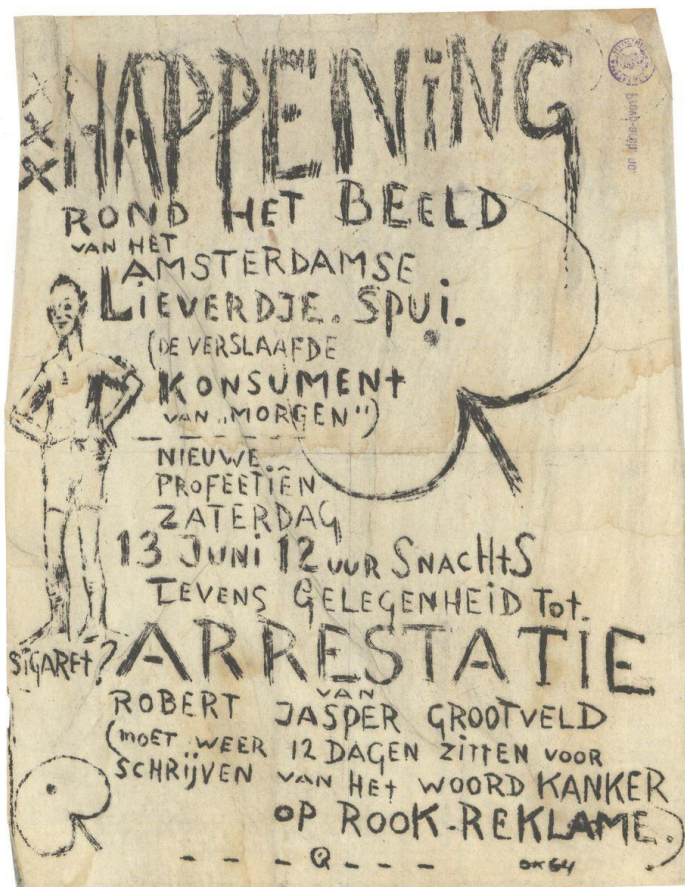 XXX HAPPENING
ROND HET BEELD
VAN HET
AMSTERDAMSE
LIEVERDJE. SPUI.
(DE VERSLAAFDE
KONSUMENt
VAN „MORGEN")
NIEUWE
PROFEETIËN
ZATERDAG
13 JUNI 12 UUR SNACHtS
TEVENS GELEGENHEID Tot.
SIGAREt? ARRESTATIE
VAN
ROBERT JASPER GROOTVELD
(MOET WEER 12 DAGEN ZITTEN VOOR
SCHRIJVEN VAN HEt WOORD KANKER
OP ROOK-REKLAME.)
OK 64